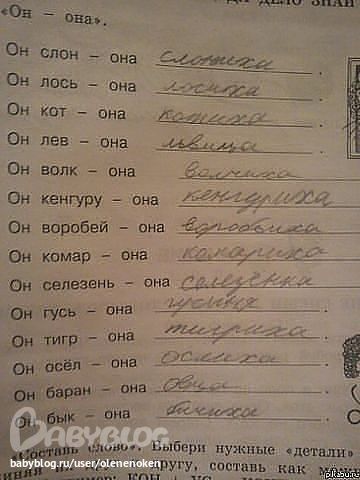 «Он – она».
Он слон – она слониха.
Он лось – она лосиха.
Он кот – она котиха.
Он лев – она львица.
Он волк – она волчиха
Он кенгуру – она кенгуриха
Он воробей – она воробьиха
Он комар – она комариха
Он селезень – она селезёнка
Он гусь – она гусыня.
Он тигр – она тигриха.
Он осёл – она ослиха.
Он баран – она овца.
Он бык – она бычиха.
«Составь слово». Выбери нужные «детали»
BABYBLOG
babyblog.ru/user/olenenoken
pikabu.ru